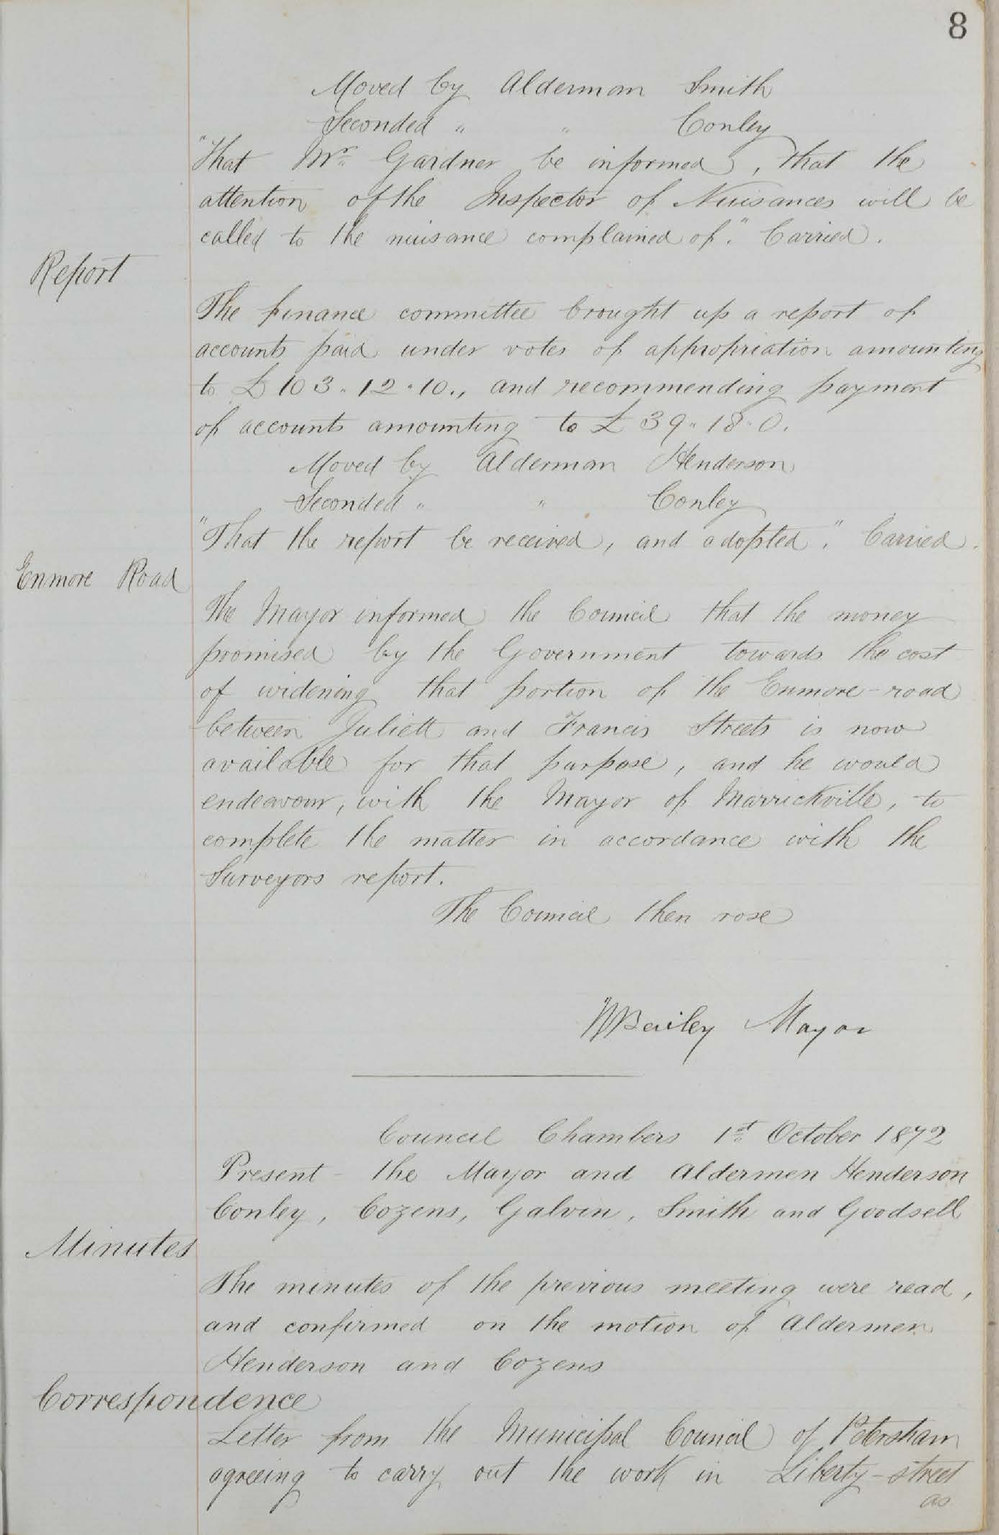 8
Moved by Alderman Smith
Seconded " " Conley
"That Mr. Gardner be informed, that the
attention of the Inspector of Nuisances will be
called to the nuisance complained of." Carried.
Report
The finance committee brought up a report of
accounts paid under votes of appropriation amounting
to £103.12.10., and recommending payment
of accounts amounting to £39.18.0.
Moved by Alderman Henderson
Seconded " " Conley
"That the report be received, and adopted". Carried.
Enmore Road
The Mayor informed the Council that the money
promised by the Government towards the cost
of widening that portion of the Enmore-road
between Juliett and Francis Streets is now
available for that purpose, and he would
endeavour, with the Mayor of Marrickville, to
complete the matter in accordance with the
Surveyors report.
The Council then rose
W Bailey Mayor
Council Chambers 1st October 1872
Present - the Mayor and Aldermen Henderson
Conley, Cozens, Galvin, Smith and Goodsell
Minutes
The minutes of the previous meeting were read,
and confirmed on the motion of Aldermen
Henderson and Cozens
Correspondence
Letter from the Municipal Council of Petersham
agreeing to carry out the work in Liberty-street
as